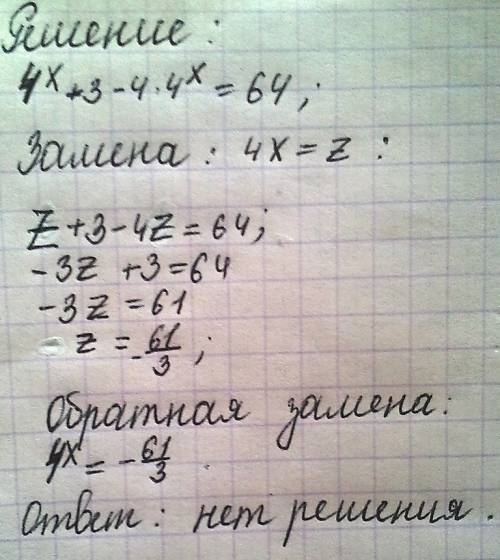 Решение:
4^x + 3 - 4 · 4^x = 64;
Замена: 4x = z :
z + 3 - 4z = 64;
-3z + 3 = 64
-3z = 61
z = -61/3;
Обратная замена:
4^x = -61/3
Ответ: нет решения.